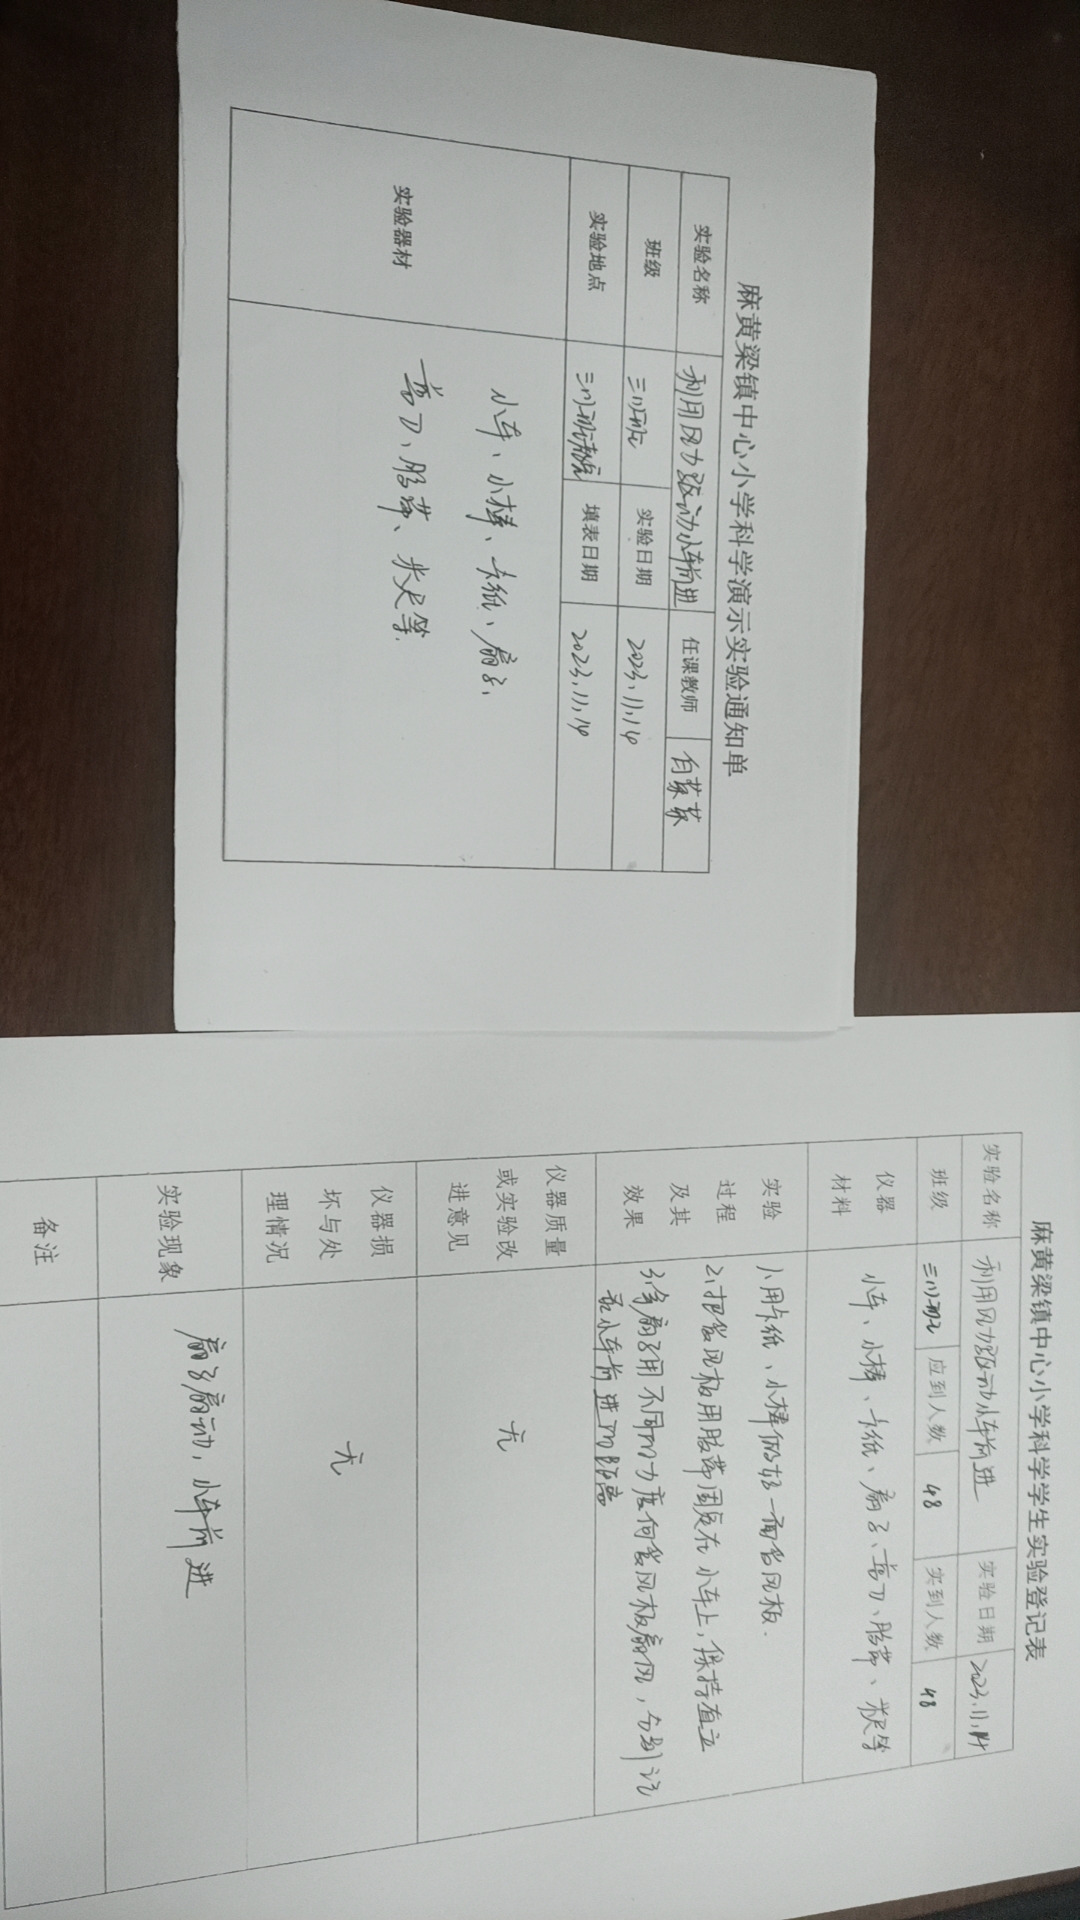 麻黄梁镇中心小学科学演示实验通知单
实验名称 利用风力驱动小车前进 任课教师
班级 三(1)班 实验日期 2023.11.14
实验地点 三(1)班教室 填表日期 2023.11.14
实验器材
小车、小棒、卡纸、扇子、
剪刀、胶带、米尺等.
麻黄梁镇中心小学科学学生实验登记表
实验名称 利用风力驱动小车前进 实验日期 2023.11.14
班级 三(1)班 应到人数 48 实到人数 48
仪器
材料
小车、小棒、卡纸、扇子、剪刀、胶带、米尺等
实验
过程
及其
效果
1、用卡纸、小棒做好一面当风板.
2、把当风板用胶带固定在小车上,保持直立
3、拿扇子用不同的力度向当风板扇风,分别记
录小车前进的距离
仪器质量
或实验改
进意见
无
仪器损
坏与处
理情况
无
实验现象
扇子扇动,小车前进
备注